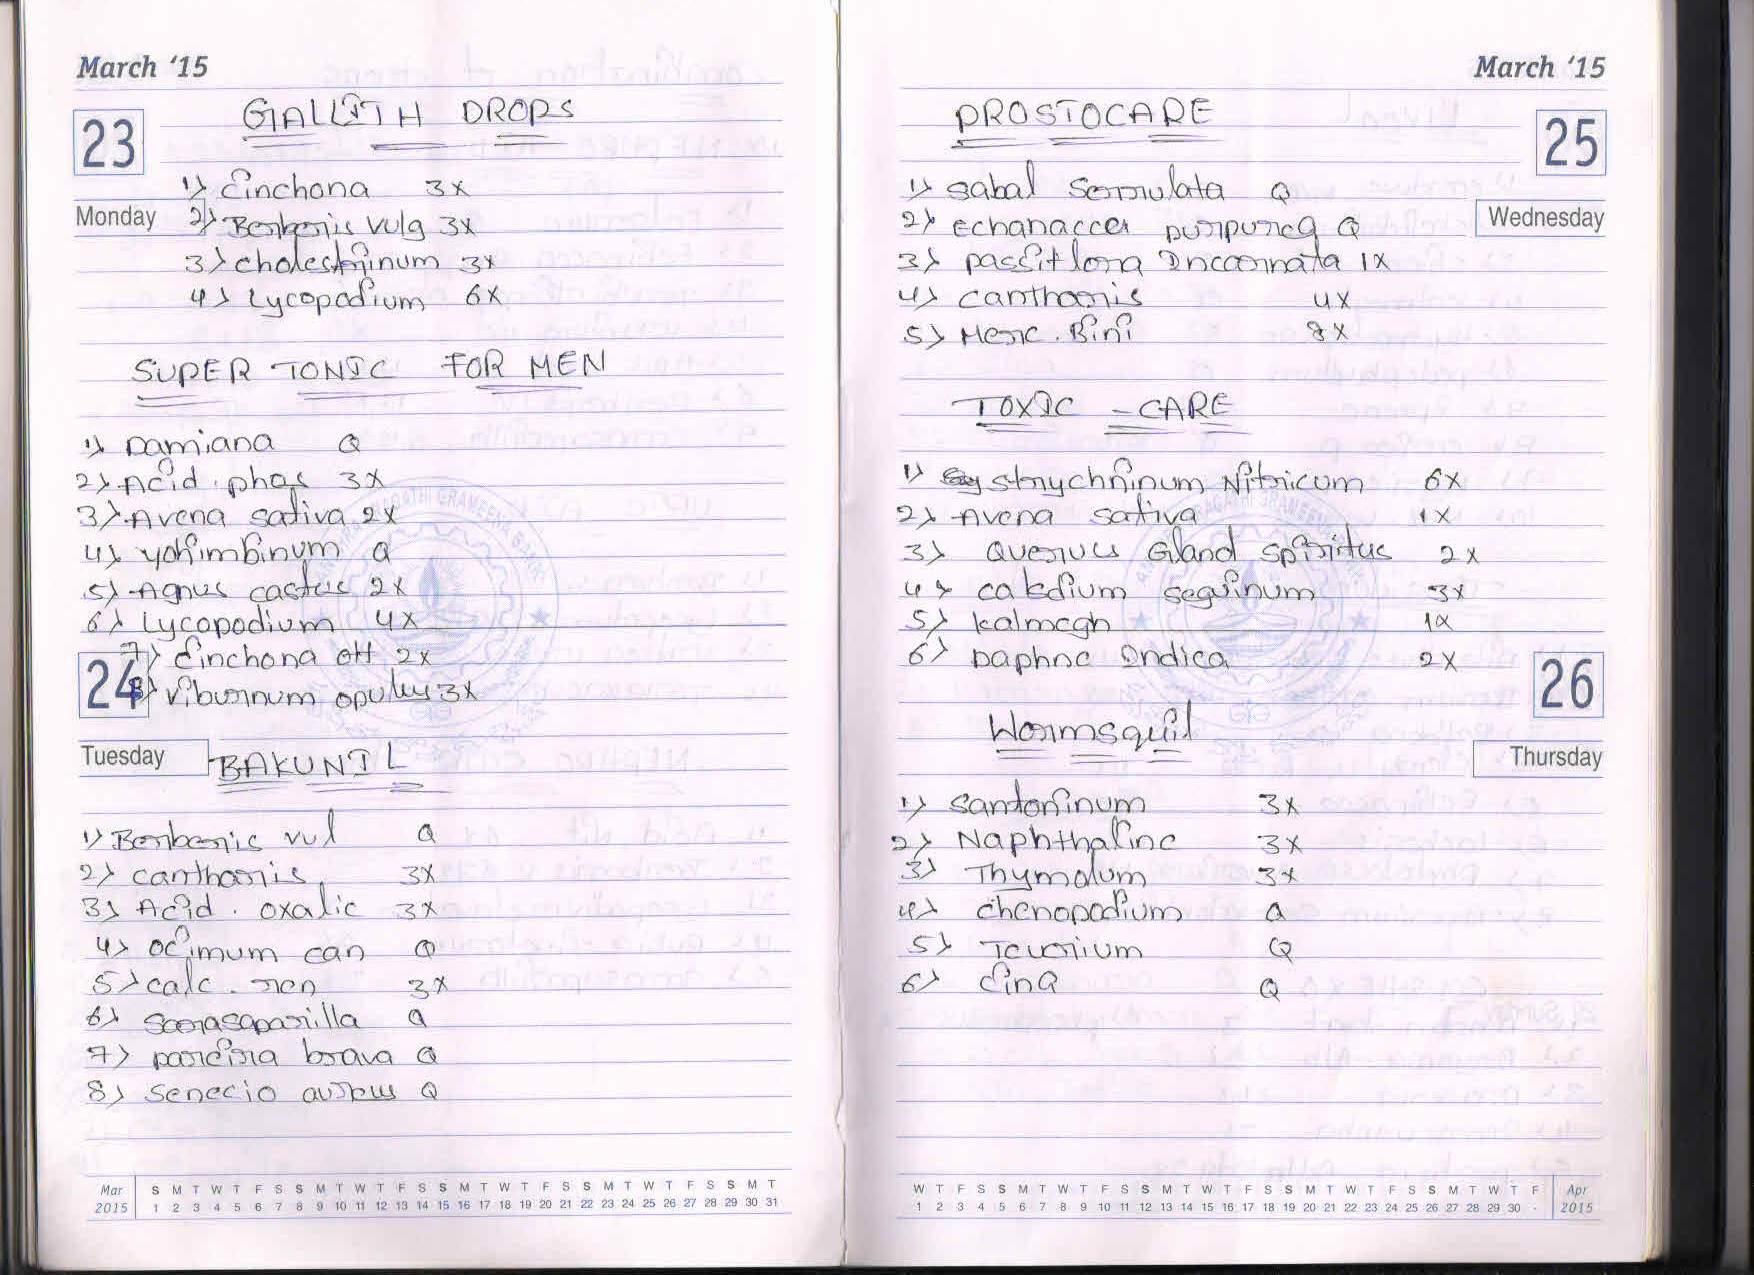 March '15
23
Monday
GALLITH DROPS
1) Cinchona 3x
2) Berberis vulg 3x
3) cholestrinum 3x
4) Lycopodium 6x
SUPER TONIC FOR MEN
1) Damiana Q
2) Acid. phos 3x
3) Avena sativa 2x
4) yohimbinum Q
5) Agnus castus 2x
6) Lycopodium 4x
7) Cinchona off 2x
24
8) Viburnum opulus 3x
Tuesday
BAKUNIL
1) Berberis vul Q
2) cantharis 3x
3) Acid. oxalic 3x
4) ocimum can Q
5) calc. ren 3x
6) Sarasaparilla Q
7) pareira brava Q
8) Senecio aureus Q
Mar S M T W T F S S M T W T F S S M T W T F S S M T W T F S S M T
2015 1 2 3 4 5 6 7 8 9 10 11 12 13 14 15 16 17 18 19 20 21 22 23 24 25 26 27 28 29 30 31
March '15
25
Wednesday
PROSTOCARE
1) Sabal Serrulata Q
2) Echanaccea purpurea Q
3) Passiflora Incarnata 1x
4) Cantharis 4x
5) Merc. Bini 8x
TOXIC - CARE
1) strychninum Nitricum 6x
2) Avena sativa 1x
3) Quercus Gland spiritus 2x
4) caladium seguinum 3x
5) kalmegh 1x
6) Daphne Indica 2x
26
Thursday
Wormsquil
1) Santoninum 3x
2) Naphthaline 3x
3) Thymolum 3x
4) chenopodium Q
5) Teucrium Q
6) Cina Q
W T F S S M T W T F S S M T W T F S S M T W T F S S M T W T F Apr
1 2 3 4 5 6 7 8 9 10 11 12 13 14 15 16 17 18 19 20 21 22 23 24 25 26 27 28 29 30 . 2015